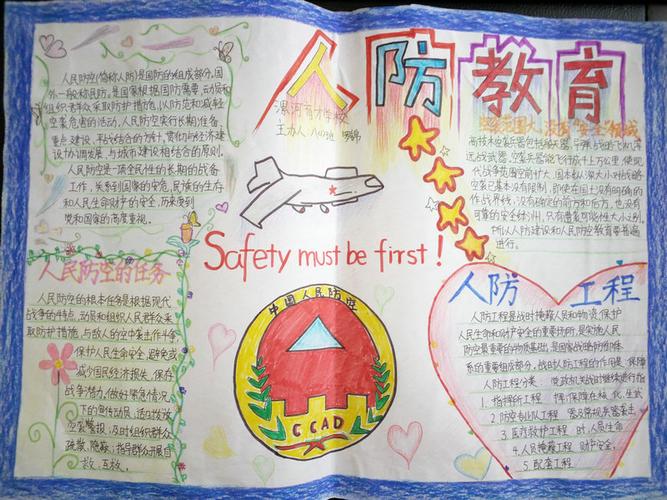 人防教育
漯河育才学校
主办人：八(4)班
人民防空(简称人防)是国防的组成部分,国
外一般称民防。是国家根据国防需要,动员和
组织群众采取防护措施,以防范和减轻
空袭危害的活动,人民防空实行长期准备、
重点建设、平战结合的方针,贯彻与经济建
设协调发展、与城市建设相结合的原则。
人民防空是一项全民性的长期的战备
工作,关系到国家的安危,民族的生存
和人民生命财产的安全,历来受到
党和国家的高度重视。
人民防空的任务
人民防空的根本任务是根据现代
战争的特点,动员和组织人民群众采
取防护措施,与敌人的空中袭击作斗争
保护人民生命安全,避免或
减少国民经济损失,保存
战争潜力,做好紧急情况
下的宣传动员,适时发放
空袭警报,及时组织群众
疏散、隐蔽;指导群众开展自
救、互救。
Safety must be first!
中国人民防空
CCAD
袭范围大,没有"安全"领域
远战武器,空袭兵器能飞行数千上万公里,使现
代战争范围空前扩大,国本积大小对小战略
空袭已基本没有限制,即使在国土没有明确的
作战界线,没有确定的前方和后方,也没有
可靠的安全绿洲,只有遭袭可能性大小之别。
所以人防建设和人民防空教育要普遍
进行。
人防 工程
人防工程是战时掩蔽人员和物资,保护
人民生命和财产安全的重要场所,是实施人民
防空最重要的物质基础,是国家战略防御体
系的重要组成部分,战时人防工程的作用是:保障
人防工程分类: 党政机关战时继续进行指
1.指挥工程
2.防空专业队工程
3.医疗救护工程 时,人民生命
4.人员掩蔽工程 财产安全。
5.配套工程